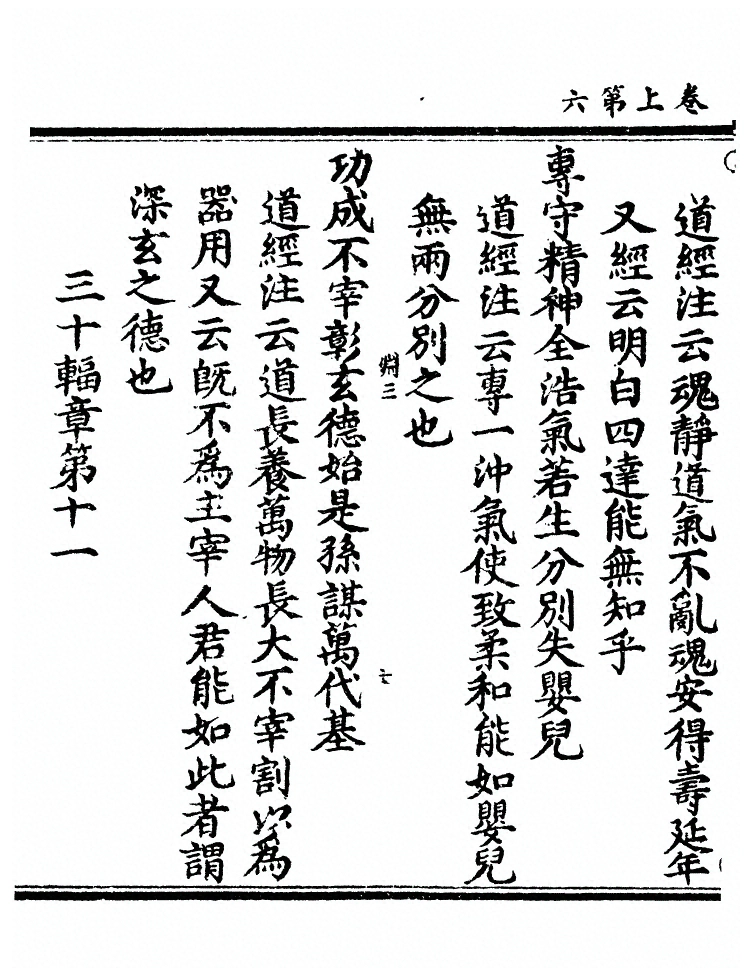 卷上第六
道經注云魂靜道氣不亂魂安得壽延年
又經云明白四達能無知乎
專守精神全浩氣若生分別失嬰兒
道經注云專一沖氣使致柔和能如嬰兒
無兩分別之也
淵三
功成不宰彰玄德始是孫謀萬代基
道經注云道長養萬物長大不宰割以為
器用又云旣不爲主宰人君能如此者謂
深玄之德也
三十輻章第十一